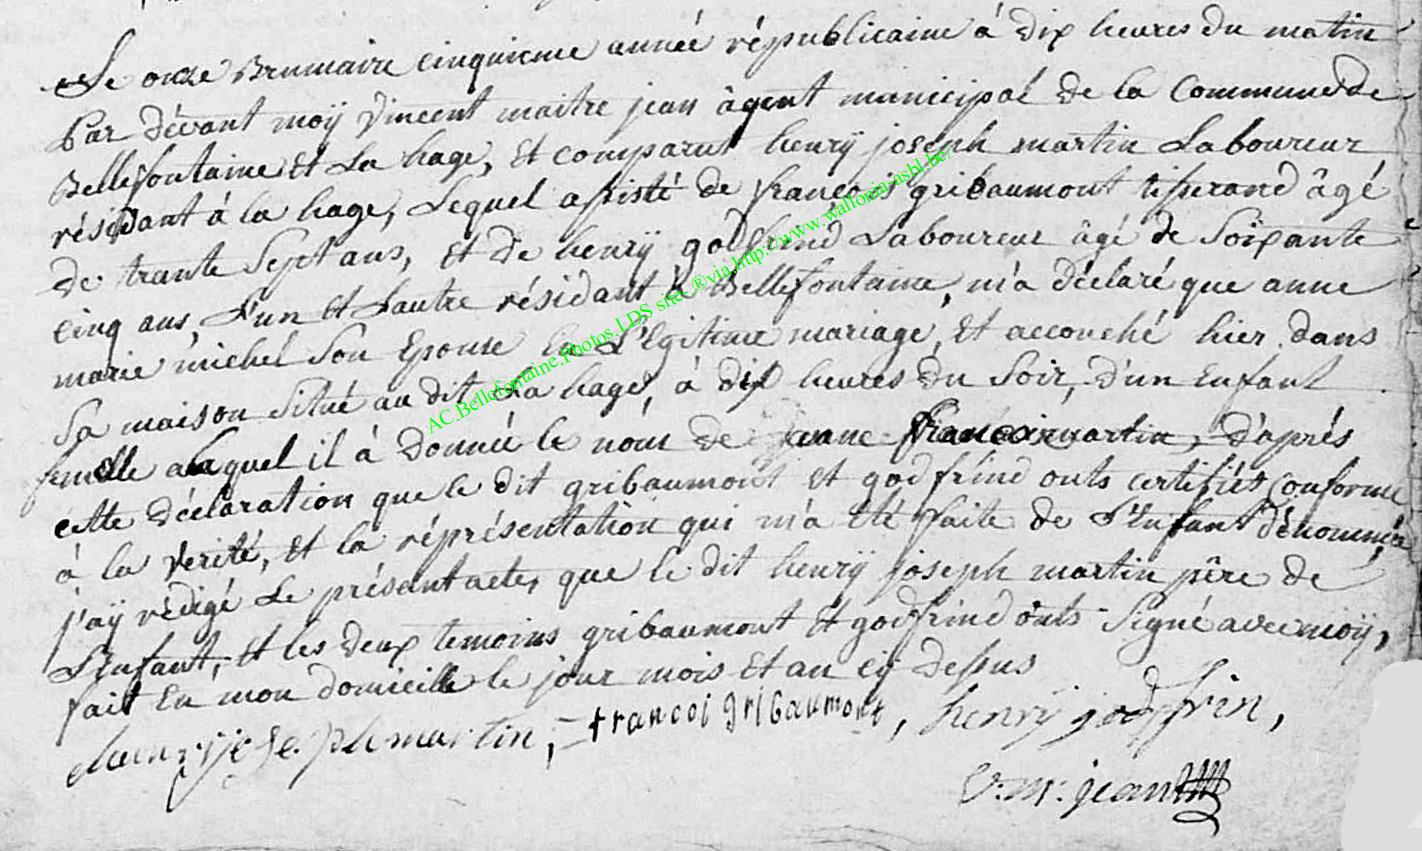 Le onze Brumaire cinquieme année républicaine à dix heures du matin
par dévant moÿ Vincent maitre jean âgent municipal de la Commune de
Bellefontaine et La hage, et comparut henrÿ joseph martin Laboureur
résidant à la hage, Lequel assisté de françois gribaumont tisserand âgé
de trante Sept ans, et de henrÿ godfrind Laboureur âgé de Soixante
cinq ans, L'un et Lautre résidant à Bellefontaine, m'a déclaré que anne
marie michel Son Epouse en L'égitime mariage, Et accouché hier dans
Sa maison Situé au dit La hage, à dix heures du Soir, d'un Enfant
femelle alaquel il à donnée le nom de jeanne martin, d'aprés
cette déclaration que le dit gribaumont et godfrind onts certifiés conforme
à la verité, et la réprésentation qui m'a été faite de L'Enfant dénommée,
j'aÿ rédigé Le présent acte, que le dit henrÿ joseph martin pêre de
L'Enfant, et les deux temoins gribaumont et godfrind onts Signé avec moÿ,
fait En mon domicille le jour mois et an cÿ dessus
henrÿ joseph martin, françoi gribaumont, henrÿ godffrin,
V. M. jean
AC.Bellefontaine.Photos LDS site ® via http://www.wallonia-asbl.be/